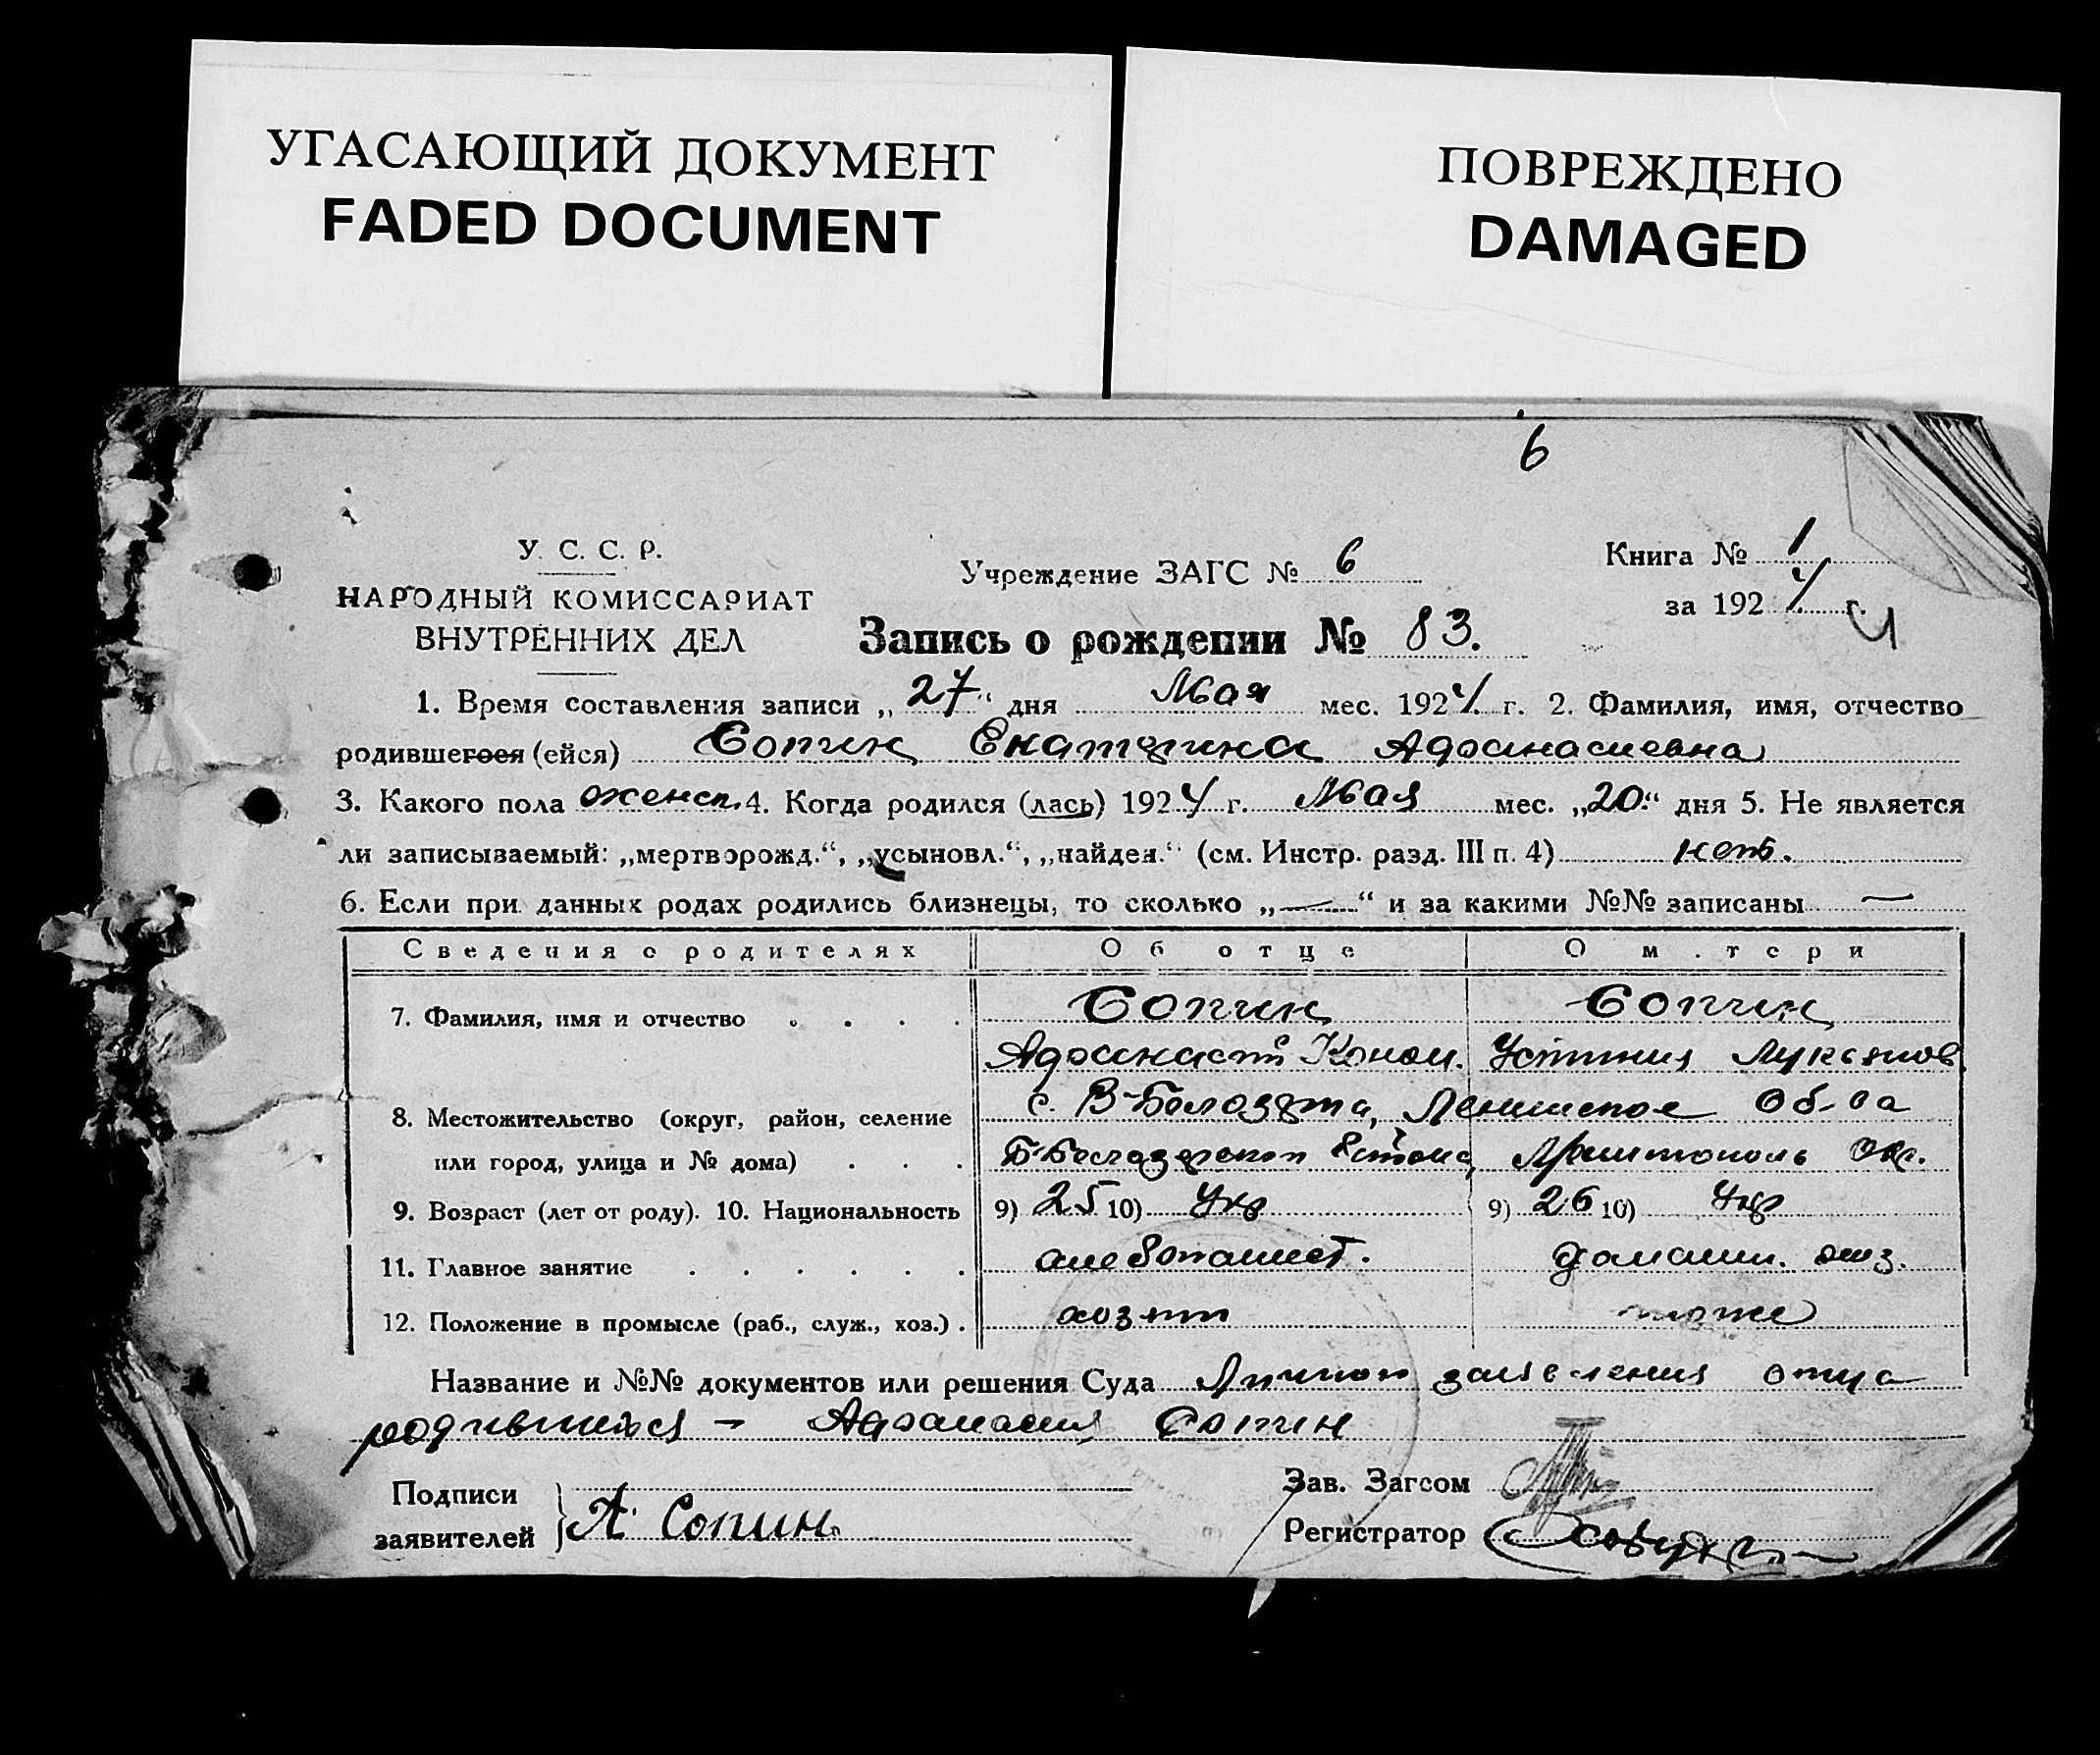 УГАСАЮЩИЙ ДОКУМЕНТ
FADED DOCUMENT
ПОВРЕЖДЕНО
DAMAGED
6
У. С. С. Р.
НАРОДНЫЙ КОМИССАРИАТ
ВНУТРЕННИХ ДЕЛ
Учреждение ЗАГС № 6
Книга № 1
за 1924 г.
4
Запись о рождении № 83.
1. Время составления записи „27“ дня Мая мес. 1924 г. 2. Фамилия, имя, отчество
родившегося (ейся) Сопин Екатерина Афанасиевна
3. Какого пола женск. 4. Когда родился (лась) 1924 г. Мая мес. „20“ дня 5. Не является
ли записываемый: „мертворожд.“, „усыновл.“, „найден.“ (см. Инстр. разд. III п. 4) нет.
6. Если при данных родах родились близнецы, то сколько „—“ и за какими №№ записаны —
Сведения о родителях Об отце О м.тери
7. Фамилия, имя и отчество Сопин Сопин
Афанасий Конон. Устиния Лукьянов
8. Местожительство (округ, район, селение с. В-Белозерка, Ленинское Об-ва
или город, улица и № дома) Б-Белозерской окг.
9. Возраст (лет от роду). 10. Национальность 9) 25 10) Укр 9) 26 10) Укр
11. Главное занятие хлебопашест. домашн. хоз.
12. Положение в промысле (раб., служ., хоз.) хозяин тоже
Название и №№ документов или решения Суда Личного заявления отца
родившейся — Афанасия Сопин
Подписи
заявителей
А. Сопин.
Зав. Загсом
Регистратор